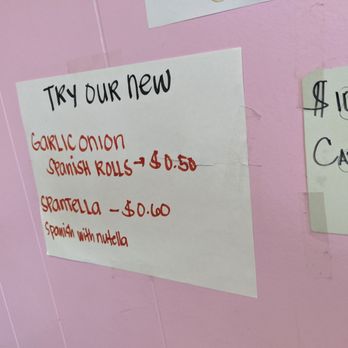 TRY OUR NEW
GARLIC ONION
SPANISH ROLLS → $0.50
SPANTELLA - $0.60
Spanish with nutella
$10
CA